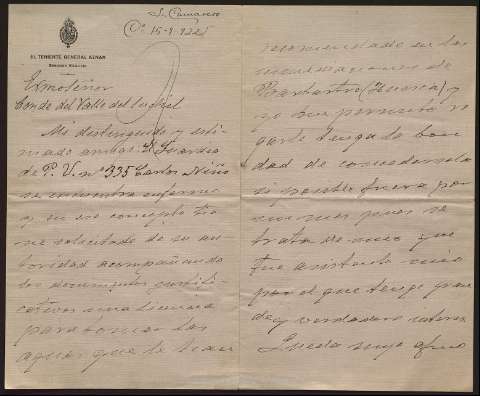 Cº 15-9-922
EL TENIENTE GENERAL AZNAR
Exmo Señor
Conde del Valle del Suchil
Mi distinguido y esti-
mado amigo: El Guardia
de P. U. nº 335 Carlos Niño
se encuentra enfermo
y en ese concepto tie
ne solicitado de su au
toridad acompañando
los documentos justifi-
cativos una licencia
para tomar las
aguas que le han
recomendado en las
inmediaciones de
Barbastro (Huesca) y
yo me permito ro
garle tenga la bon
dad de concedersela
si posible fuera por
un mes pues se
trata de uno que
fue asistente mio
por el que tengo gran
de y verdadero interes
Queda suyo afmo